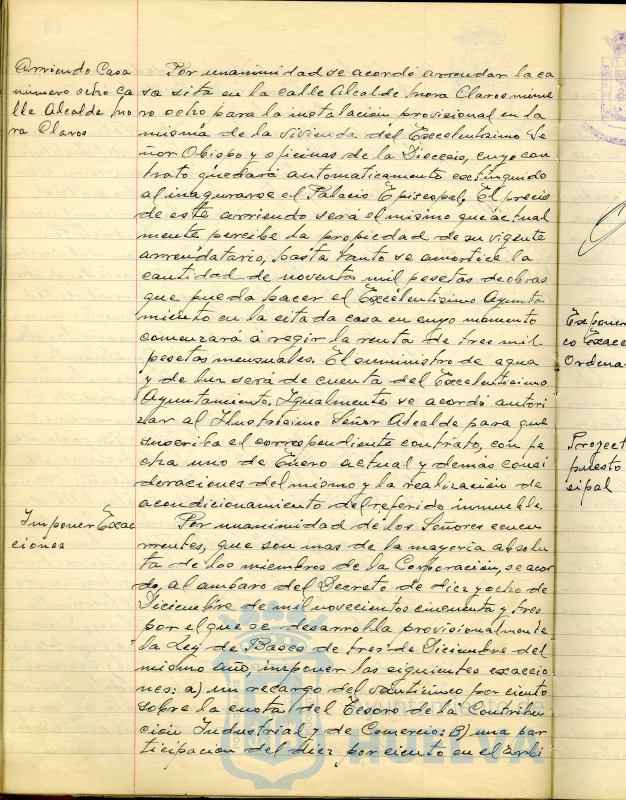 Arriendo Casa
número ocho Ca
lle Alcalde Mo
ra Claros
Por unanimidad se acordó arrendar la ca
sa sita en la calle Alcalde Mora Claros núme
ro ocho para la instalación provisional en la
misma de la vivienda del Excelentisimo Se
ñor Obispo y oficinas de la Diocesis, cuyo con
trato quedará automaticamente extinguido
al inagurarse el Palacio Episcopal. El precio
de este arriendo será el mismo que actual
mente percibe la propiedad de su vigente
arrendatario, hasta tanto se amortice la
cantidad de noventa mil pesetas de obras
que pueda hacer el Excelentisimo Ayunta
miento en la citada casa en cuyo momento
comenzará á regir la renta de tres mil
pesetas mensuales. El suministro de agua
y de luz será de cuenta del Excelentisimo
Ayuntamiento. Igualmente se acordó autori
zar al Ilustrisimo Señor Alcalde para que
suscriba el correspondiente contrato, con fe
cha uno de Enero actual y demás consi
deraciones del mismo y la realización de
acondicionamiento del referido inmueble.
Imponer Exac
ciones
Por unanimidad de los Señores concu
rrentes, que son mas de la mayoría absolu
ta de los miembros de la Corporación, se acor
dó, al amparo del Decreto de diez y ocho de
Diciembre de mil novecientos cincuenta y tres
por el que se desarrolla provisionalmente
la Ley de Bases de tres de Diciembre del
mismo año, imponer las siguientes exaccio
nes: a) un recargo del veinticinco por ciento
sobre la cuota del Tesoro de la Contribu
ción Industrial y de Comercio: B) una par
ticipación del diez por ciento en el Arbi
Exponer
co Exacc
Ordena
Proyect
puesto
cipal
Ayuntamiento de
HUELVA